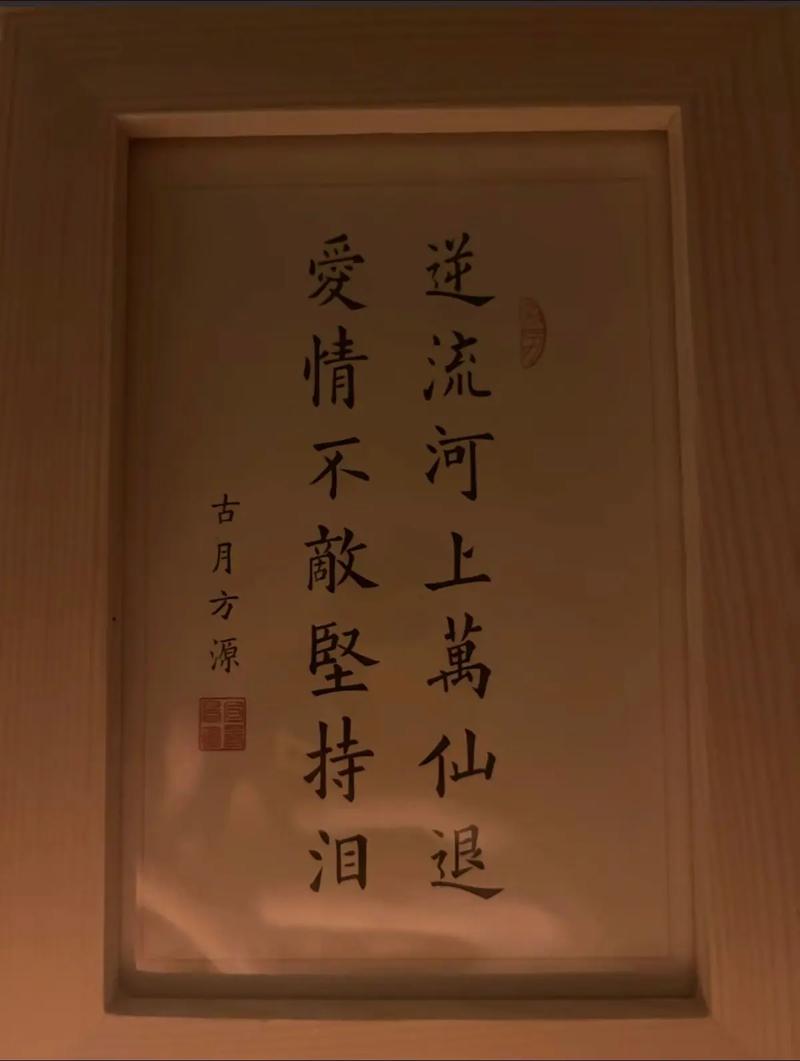 逆流河上萬仙退
愛情不敵堅持泪
古月方源